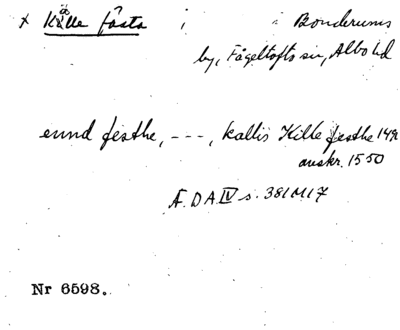 x Källe fästa i Bonderums
by, Fågeltofts sn, Albo hd
ennd festhe, ---, kallis Kille festhe 149
avskr. 1550
Æ. D A. IV s. 381 M 17
Nr 6598.